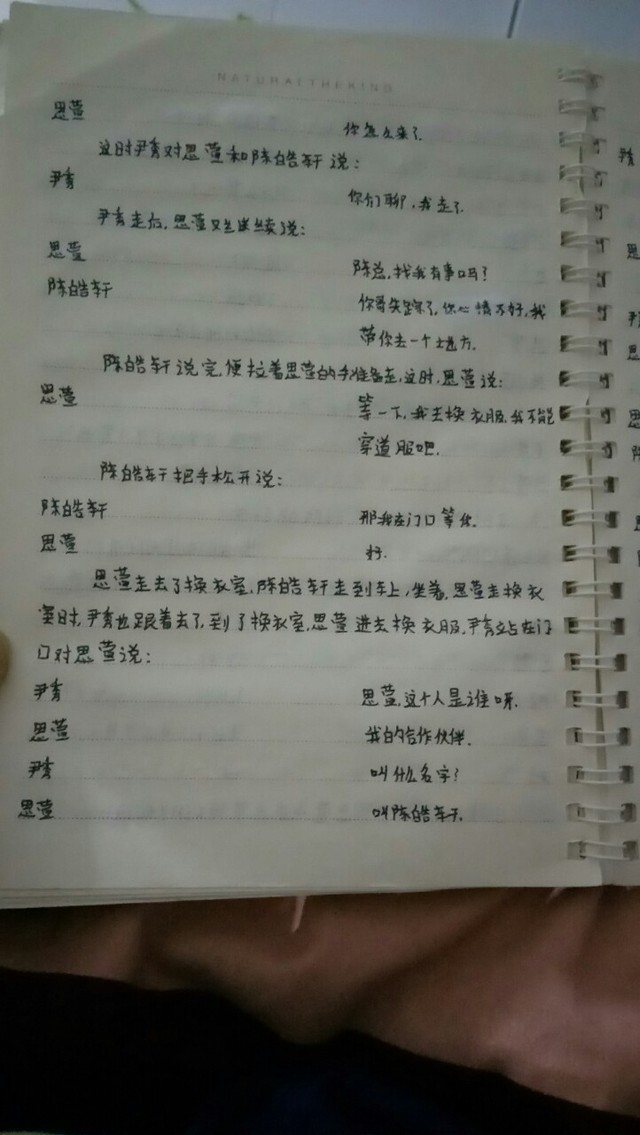 NATURALTHEKING
思萱 你怎么来了.
这时尹秀对思萱和陈皓轩说:
尹秀 你们聊,我走了.
尹秀走后,思萱又继续说:
思萱 陈总,找我有事吗?
陈皓轩 你哥失踪了,你心情不好,我
带你去一个地方.
陈皓轩说完,便拉着思萱的手准备走,这时,思萱说:
思萱 等一下,我去换衣服,我不能
穿道服吧.
陈皓轩把手松开说:
陈皓轩 那我在门口等你.
思萱 好.
思萱走去了换衣室,陈皓轩走到车上,坐着,思萱走换衣
室时,尹秀也跟着去了,到了换衣室,思萱进去换衣服,尹秀站在门
口对思萱说:
尹秀 思萱,这个人是谁呀.
思萱 我的合作伙伴.
尹秀 叫什么名字?
思萱 叫陈皓轩.